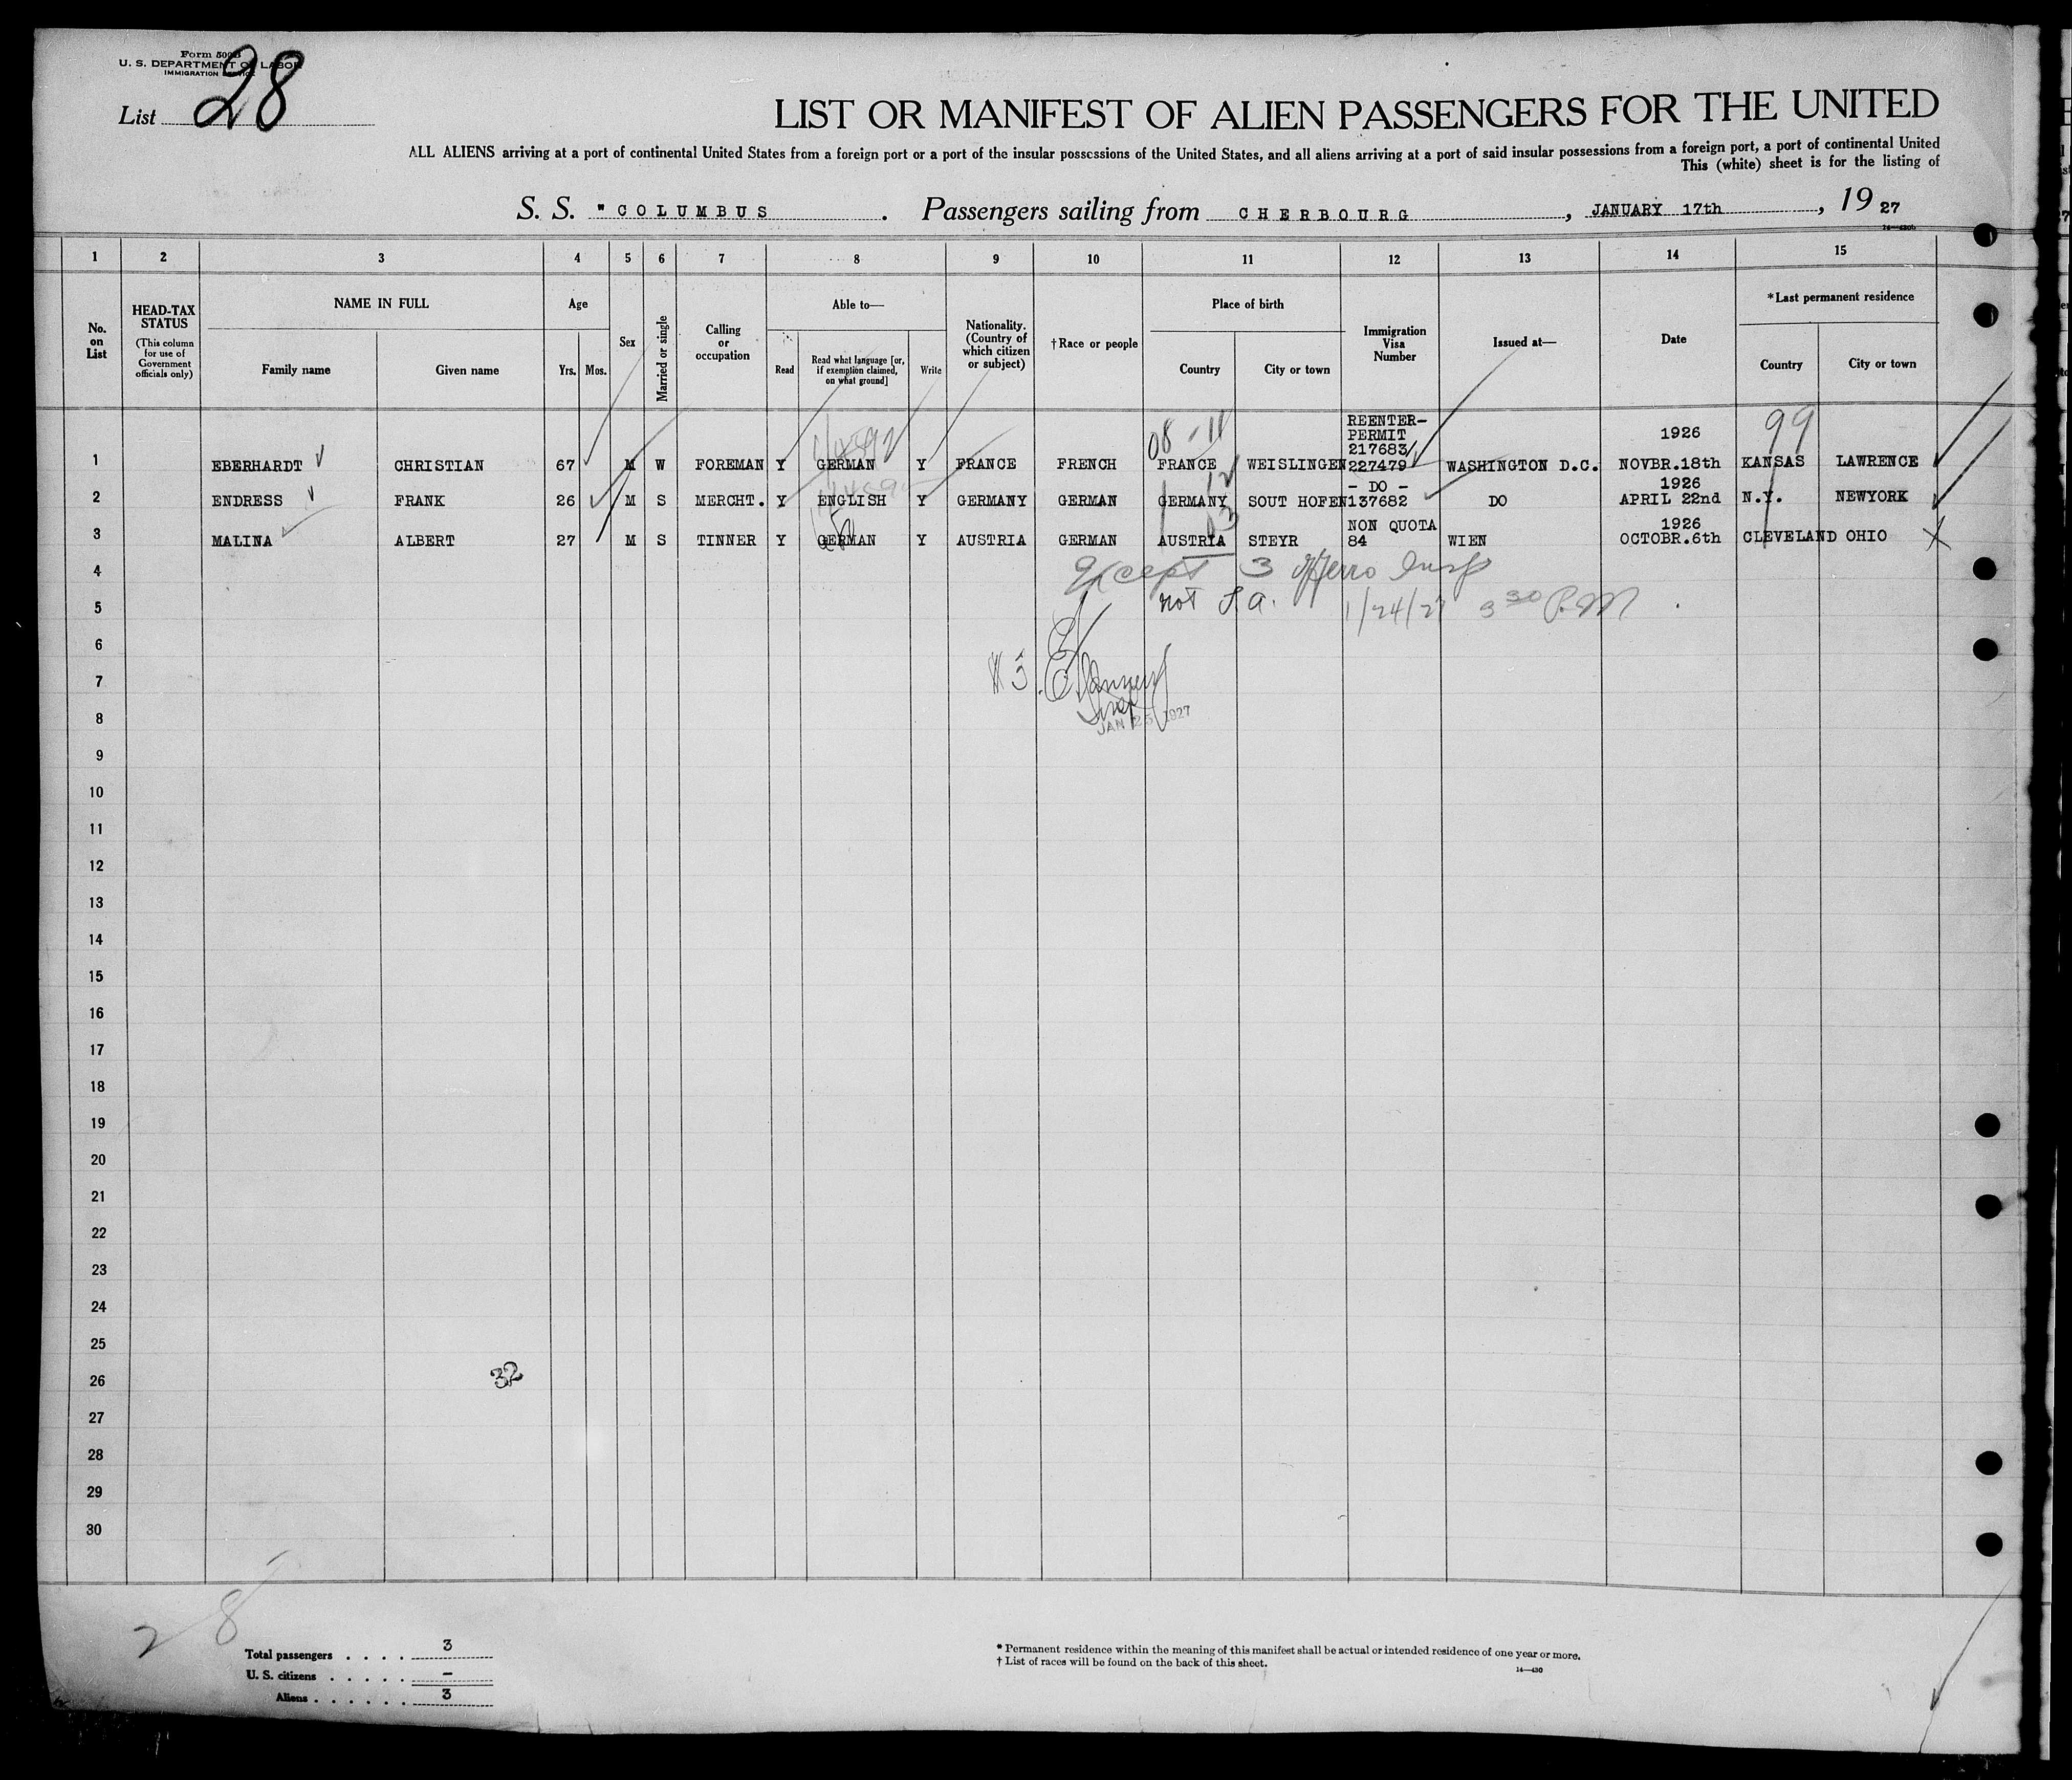 Form 500
U. S. DEPARTMENT OF LABOR
IMMIGRATION SERVICE
List 28
LIST OR MANIFEST OF ALIEN PASSENGERS FOR THE UNITED
ALL ALIENS arriving at a port of continental United States from a foreign port or a port of the insular possessions of the United States, and all aliens arriving at a port of said insular possessions from a foreign port, a port of continental United
This (white) sheet is for the listing of
S. S. "COLUMBUS . Passengers sailing from CHERBOURG , JANUARY 17th , 19 27
1 2 3 4 5 6 7 8 9 10 11 12 13 14 15
No. on List
HEAD-TAX STATUS
(This column for use of Government officials only)
NAME IN FULL
Family name Given name
Age
Yrs. Mos.
Sex
Married or single
Calling or occupation
Able to—
Read
Read what language [or, if exemption claimed, on what ground]
Write
Nationality. (Country of which citizen or subject)
†Race or people
Place of birth
Country City or town
Immigration Visa Number
Issued at—
Date
*Last permanent residence
Country City or town
08 -11
99
REENTER-
PERMIT
217683/ 1926
1 EBERHARDT CHRISTIAN 67 M W FOREMAN Y GERMAN Y FRANCE FRENCH FRANCE WEISLINGEN 227479 WASHINGTON D.C. NOVBR.18th KANSAS LAWRENCE
- DO - 1926
2 ENDRESS FRANK 26 M S MERCHT. Y ENGLISH Y GERMANY GERMAN GERMANY SOUT HOFEN 137682 DO APRIL 22nd N.Y. NEWYORK
NON QUOTA 1926
3 MALINA ALBERT 27 M S TINNER Y GERMAN Y AUSTRIA GERMAN AUSTRIA STEYR 84 WIEN OCTOBR.6th CLEVELAND OHIO X
4 Except 3 Insp
5 not 1/24/27 3 30 P.M
6
7 #3
Insp
8 JAN 25 1927
9
10
11
12
13
14
15
16
17
18
19
20
21
22
23
24
25
26 32
27
28
29
30
28
Total passengers . . . . 3
U. S. citizens . . . . . –
Aliens . . . . . . 3
* Permanent residence within the meaning of this manifest shall be actual or intended residence of one year or more.
† List of races will be found on the back of this sheet.
14—430